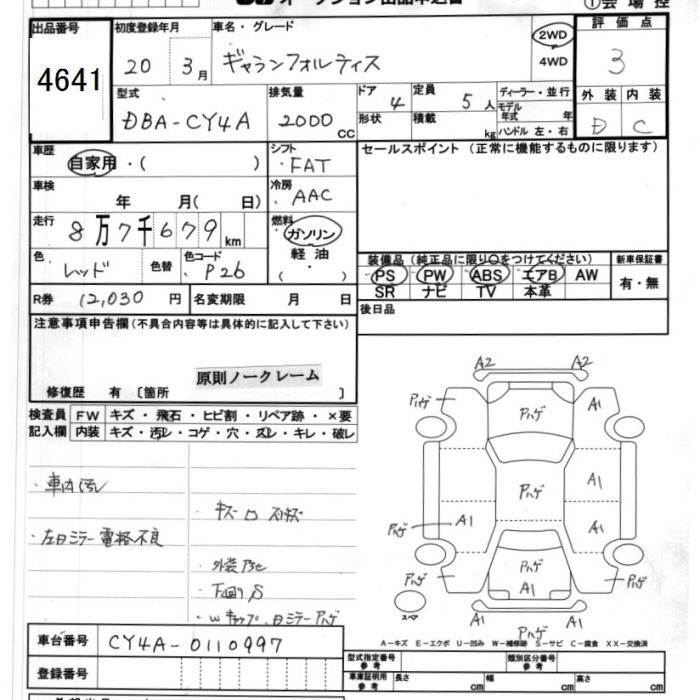 ①会場控
出品番号 4641
初度登録年月 20 3月
車名・グレード ギャランフォルティス
2WD
4WD
評価点 3
外装 内装
D C
型式 DBA-CY4A
排気量 2000 CC
ドア 4
形状
定員 5人
積載 kg
ディーラー・並行
モデル年式 年
ハンドル 左・右
車歴 自家用・( )
シフト FAT
車検 年 月( 日)
冷房 AAC
走行 8万7千679km
燃料 ガソリン
軽油
( ・ )
色 レッド 色替
色コード P26
R券 12,030円
名変期限 月 日
セールスポイント (正常に機能するものに限ります)
装備品 (純正品に限り○をつけてください)
PS PW ABS エアB AW
SR ナビ TV 本革
新車保証書
有・無
後日品
注意事項申告欄(不具合内容等は具体的に記入して下さい)
原則ノークレーム
修復歴 有 〔箇所 〕
検査員記入欄
FW キズ・飛石・ヒビ割・リペア跡・×要
内装 キズ・汚レ・コゲ・穴・スレ・キレ・破レ
・車内汚レ
・左日ミラー電格不良
・下回りS
A2 A2
パハゲ パハゲ A1
パハゲ A1
パハゲ A1 A1
パハゲ パハゲ パハゲ
A1
スペア
A1 A1
パハゲ
A-キズ E-エクボ U-凹み W-補修跡 S-サビ C-腐食 XX-交換済
車台番号 CY4A-0110997
登録番号
型式指定番号 参考
類別区分番号 参考
車庫証明用 参考 長さ cm 幅 cm 高さ cm